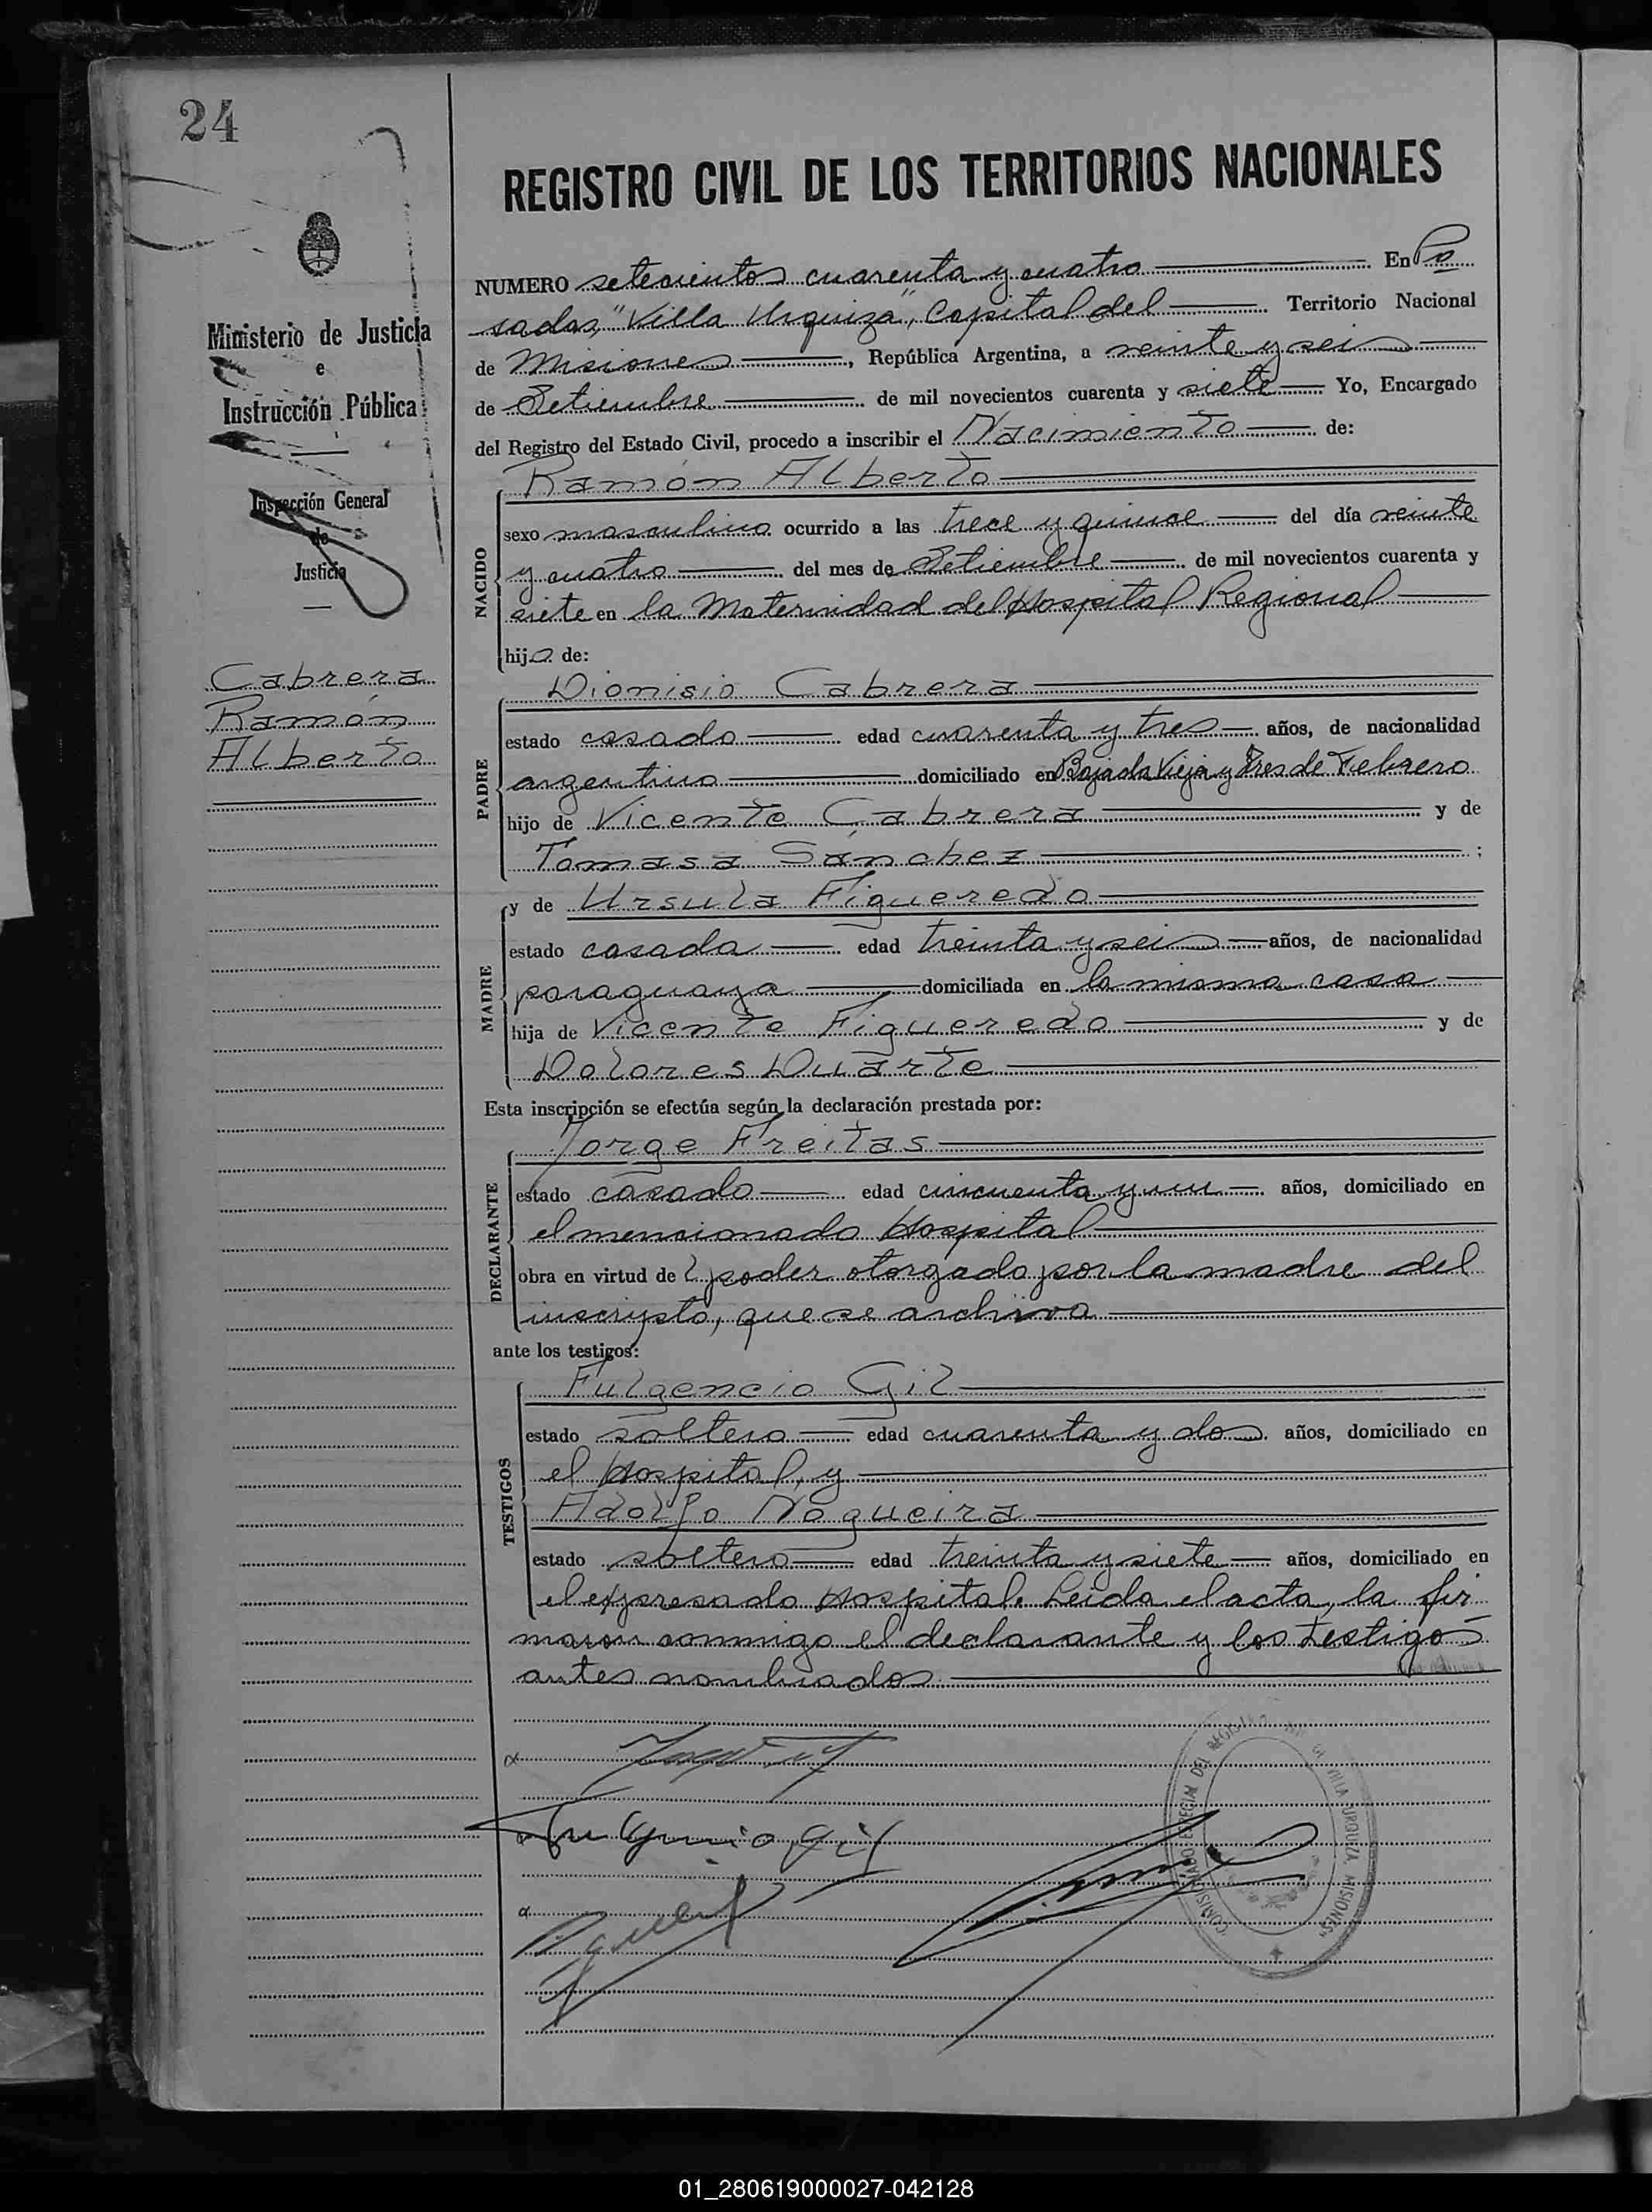 24
REGISTRO CIVIL DE LOS TERRITORIOS NACIONALES
Ministerio de Justicia
e
Instrucción Pública
Inspección General
de
Justicia
Cabrera
Ramón
Alberto
NUMERO setecientos cuarenta y cuatro En Po
sadas, "Villa Urquiza", Capital del Territorio Nacional
de Misiones, República Argentina, a veinte y seis
de Setiembre de mil novecientos cuarenta y siete Yo, Encargado
del Registro del Estado Civil, procedo a inscribir el Nacimiento de:
NACIDO
Ramón Alberto
sexo masculino ocurrido a las trece y quince del día veinte
y cuatro del mes de Setiembre de mil novecientos cuarenta y
siete en la Maternidad del Hospital Regional
hijo de:
PADRE
Dionisio Cabrera
estado casado edad cuarenta y tres años, de nacionalidad
argentino domiciliado en Bajada Vieja y Tres de Febrero
hijo de Vicente Cabrera y de
Tomasa Sánchez ;
MADRE
y de Ursula Figueredo
estado casada edad treinta y seis años, de nacionalidad
paraguaya domiciliada en la misma casa
hija de Vicente Figueredo y de
Dolores Duarte
Esta inscripción se efectúa según la declaración prestada por:
DECLARANTE
Jorge Freitas
estado casado edad cincuenta y un años, domiciliado en
el mencionado Hospital
obra en virtud de poder otorgado por la madre del
inscripto, que se archiva
ante los testigos:
TESTIGOS
Fulgencio Gil
estado soltero edad cuarenta y dos años, domiciliado en
el Hospital, y
Adolfo Nogueira
estado soltero edad treinta y siete años, domiciliado en
el expresado Hospital. Leida el acta, la fir
maron conmigo el declarante y los testigos
antes nombrados.
Fulgencio Gil
COMISIONADO ESPECIAL DEL REGISTRO VILLA URQUIZA. MISIONES
01_280619000027-042128